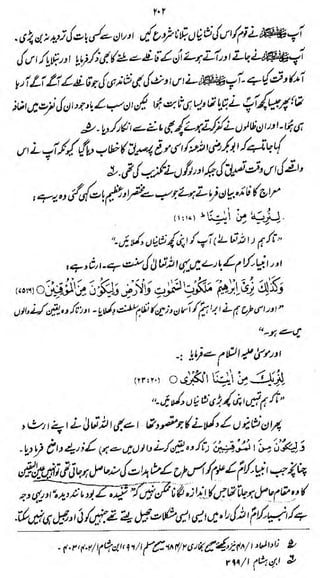 ۲۰۲
آپ ﷺ نے قوم کو اس کی نشانیاں بتلانا شروع کیں اور ان سے کسی بات کی تردید نہ بن پڑی۔
آپ ﷺ نے جاتے اور آتے ہوئے اُن کے قافلے سے ملنے کا بھی ذکر فرمایا اور بتلایا کہ اس کی
آمد کا وقت کیا ہے۔ آپ ﷺ نے اس اونٹ کی بھی نشاندہی کی جو قافلے کے آگے آگے آرہا
تھا؛ پھر جیسا کچھ آپ نے بتایا تھا ویسا ہی ثابت ہُوا لیکن ان سب کے باوجود ان کی نفرت میں اضافہ
ہی ہُوا۔ اور ان ظالموں نے کفر کرتے ہوئے کچھ بھی ماننے سے انکار کر دیا۔
کہا جاتا ہے کہ ابوبکر رضی اللہ عنہ کو اسی موقع پر صدیق کا خطاب دیا گیا کیونکہ آپ نے اس
واقعے کی اس وقت تصدیق کی جبکہ اور لوگوں نے تکذیب کی تھی۔
معراج کا فائدہ بیان فرماتے ہوئے جو سب سے مختصر اور عظیم بات کہی گئی وہ یہ ہے:
لِنُرِيَهُ مِنْ اٰيٰتِنَا (۱:۱۷)
”تاکہ ہم (اللہ تعالیٰ) آپ کو اپنی کچھ نشانیاں دکھلائیں۔“
اور انبیاء کرام کے بارے میں یہی اللہ تعالیٰ کی سنت ہے۔ ارشاد ہے:
وَكَذٰلِكَ نُرِيْ اِبْرٰهِيْمَ مَلَكُوْتَ السَّمٰوٰتِ وَالْاَرْضِ وَلِيَكُوْنَ مِنَ الْمُوْقِنِيْنَ ○ (۷۵:۶)
”اور اسی طرح ہم نے ابراہیم کو آسمان و زمین کا نظام سلطنت دکھلایا۔ اور تاکہ وہ یقین کرنے والوں
میں سے ہو۔“
اور موسیٰ علیہ السلام سے فرمایا:
لِنُرِيَكَ مِنْ اٰيٰتِنَا الْكُبْرٰى ○ (۲۳:۲۰)
”تاکہ ہم تمہیں اپنی کچھ بڑی نشانیاں دکھلائیں۔“
پھر ان نشانیوں کے دکھلانے کا جو مقصود تھا اسے بھی اللہ تعالیٰ نے اپنے ارشاد
وَلِيَكُوْنَ مِنَ الْمُوْقِنِيْنَ (تاکہ وہ یقین کرنے والوں میں سے ہو) کے ذریعے واضح فرما دیا۔
چنانچہ جب انبیاء کرام کے علوم کو اس طرح کے مشاہدات کی سند حاصل ہو جاتی تھی تو انہیں عین الیقین
کا وہ مقام حاصل ہو جاتا تھا جس کا اندازہ لگانا ممکن نہیں کہ ”شنیدہ کے بود مانند دیدہ“ اور یہی وجہ
ہے کہ انبیاء کرام اللہ کی راہ میں ایسی ایسی مشکلات جھیل لیتے تھے جنہیں کوئی اور جھیل ہی نہیں سکتا۔
زاد المعاد ۱/۴۸ نیز دیکھئے صحیح بخاری ۲/۶۸۴ صحیح مسلم ۱/۹۶، ابن ہشام ۱/۴۰۲، ۴۰۳
ابن ہشام ۱/۳۹۹